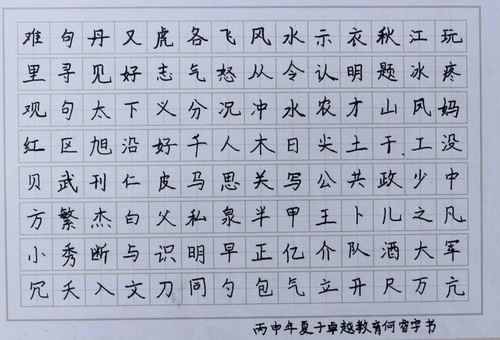 难句丹又虎各飞风水示衣秋江玩
里寻见好志气怒从令认明题冰疼
观句太下义分况冲水农才山凤妈
红区旭沿好千人木日尖土于工没
贝武刊仁皮马思关写公共政少中
方繁杰白父私泉半甲王卜儿之凡
小秀断与识明早正亿介队酒大军
冗夭入文刀同勺包气立开尺万亢
丙申年夏于卓越教育何容字书